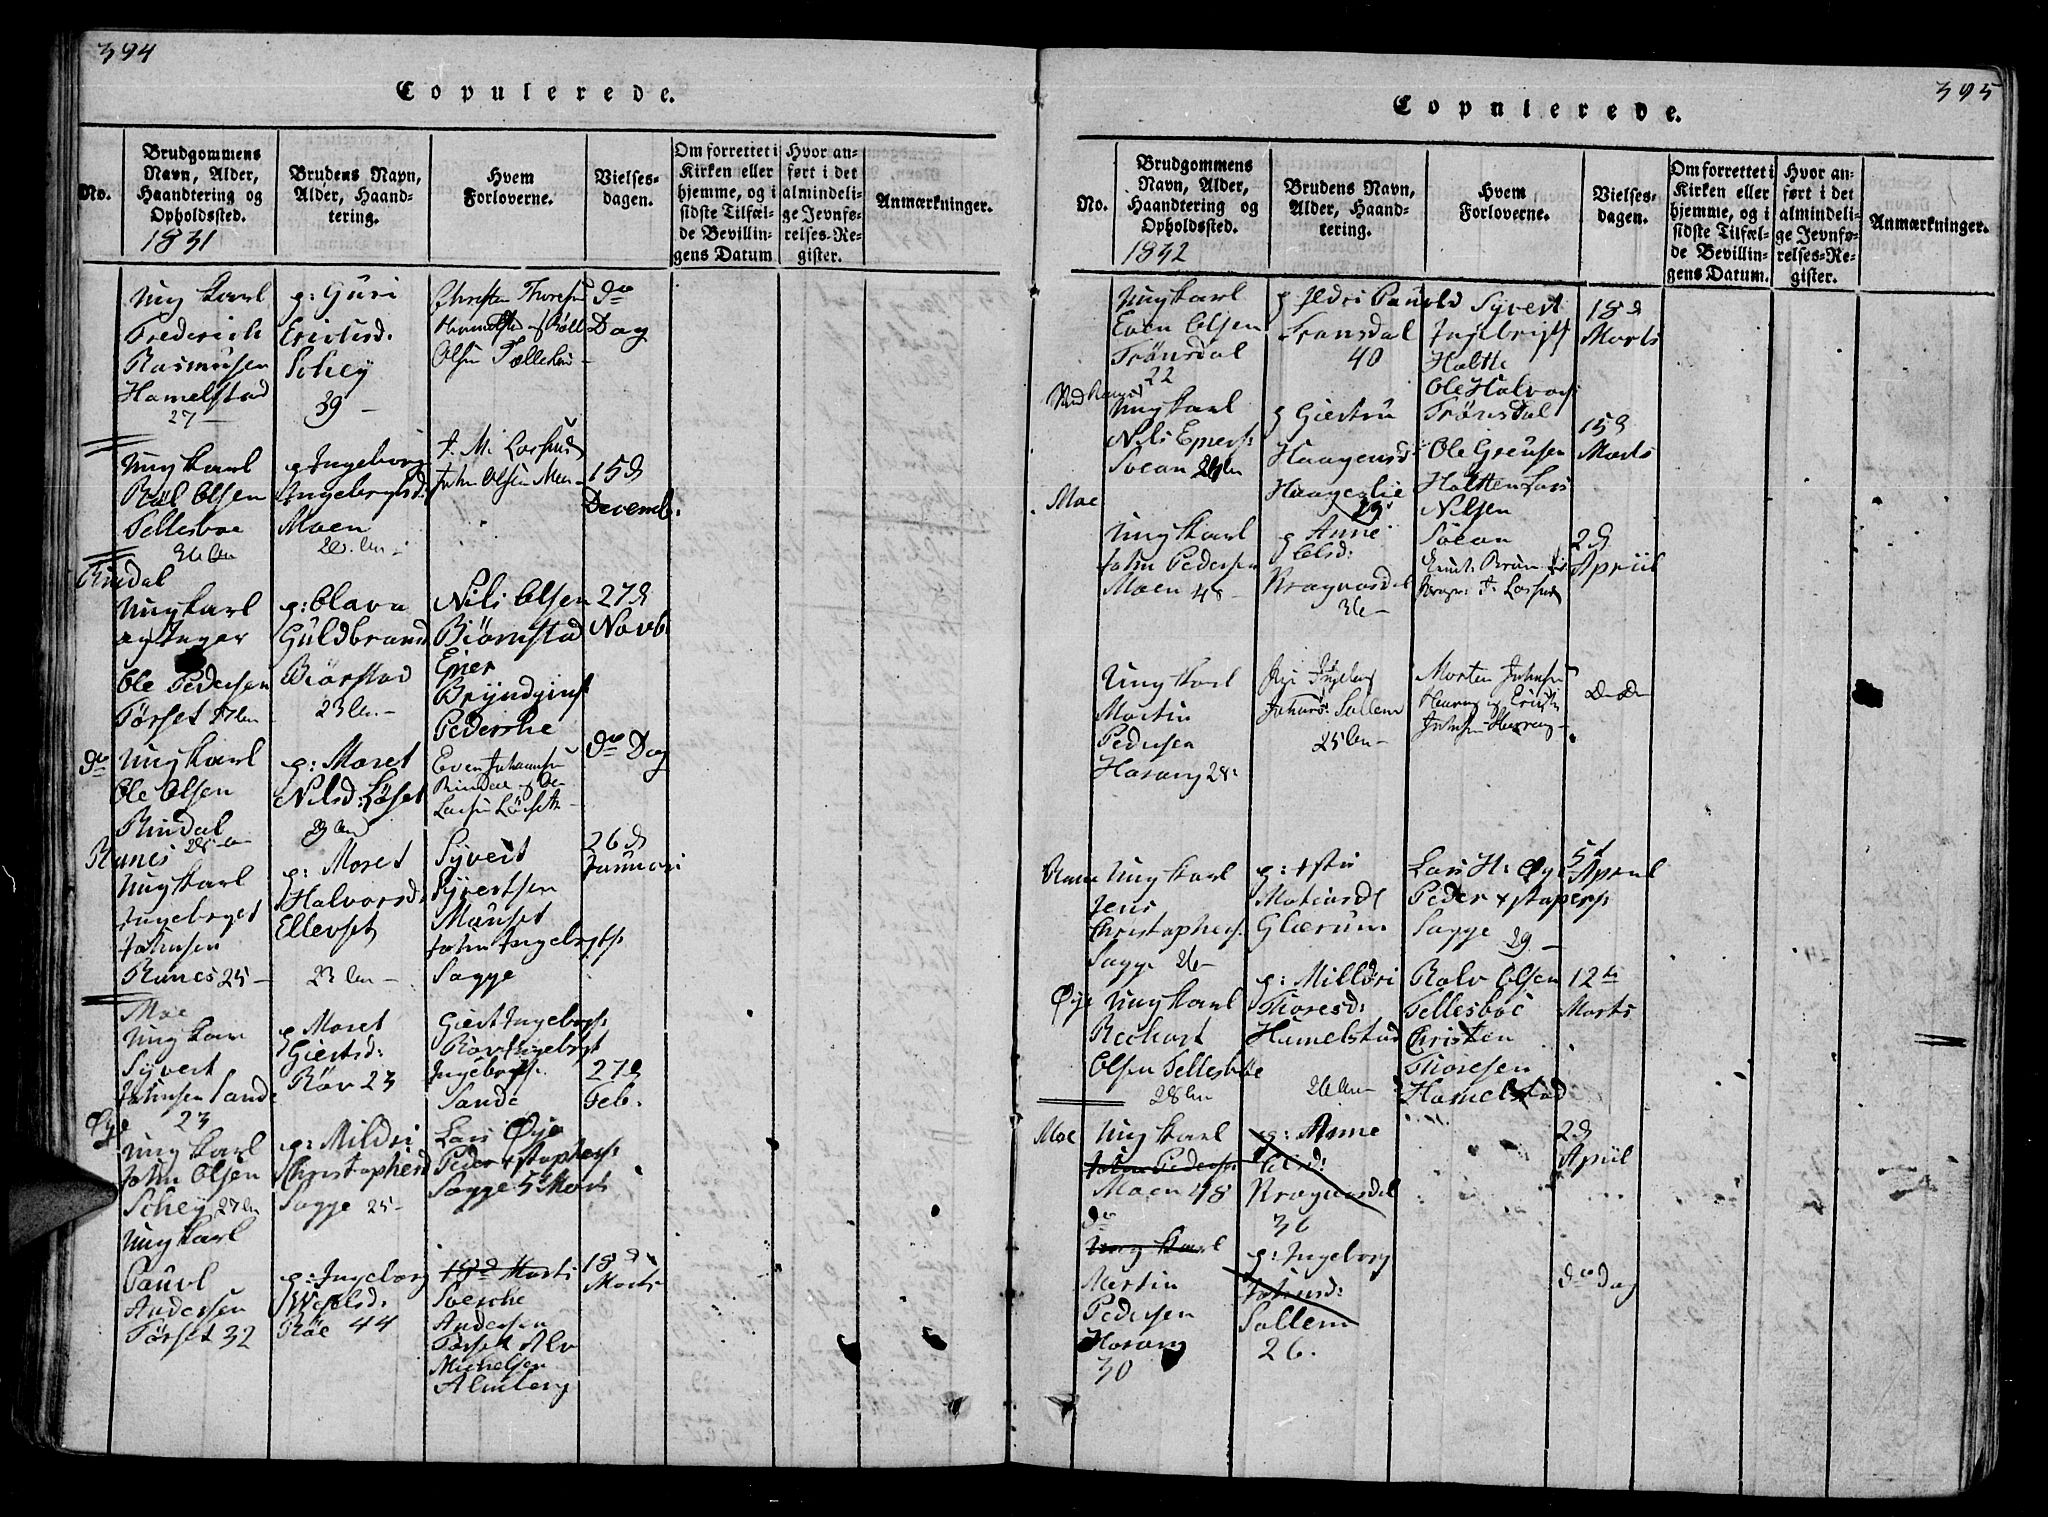 394
Copulerede.
No.
Brudgommens
Navn, Alder,
Haandtering og
Opholdssted.
1831
Brudens Navn,
Alder, Haand-
tering.
Hvem
Forloverne.
Vielses-
dagen.
Om forrettet i
Kirken eller
hjemme, og i
sidste Tilfæl-
de Bevillin-
gens Datum
Hvor an-
ført i det
almindeli-
ge Jevnfø-
relses-Re-
gister.
Anmærkninger.
Ungkarl
Frederich
Rasmusen
Hamelstad
27
g: Guri
Erichsd.
Schey
39
Christen Thoresen
Hamelstad og Röll
Olsen
do
Dag
Ungkarl
Röl Olsen
Tellesboe
36
g Ingeborg
Ingebrigtsd.
Moen
John Olsen Moen
15d
Decemb.
Rindal
Ungkarl
Ole Pedersen
Törset 27
g: Olava
Guldbrand
Biörstad
23
Nils Olsen
Biörnstad
Ener
27d
Novb.
do
Ungkarl
Ole Olsen
Rindal
g: Maret
Nilsd: Löset
Even Johannsen
Rindal
do Dag
Ranes
Ungkarl
Ingebrigt
Johnsen
Ranes 25
g: Maret
Halvorsd:
Ellevset
23
Syvert
Syvertsen
Mauset
John Ingebrigts.
Sagge
26d
Januari
Moe
Ungkarl
Syvert
Johnsen Sande
23
g Maret
Giertsd:
Röv 23
Giert Ingebrigts.
Röv Ingebrigt
Ingebrigts.
Sande
27d
Feb.
Øye
Ungkarl
John Olsen
Schey 27
g: Mildri
Christophersd
Sagge 25
Lars Øye
Peder
Sagge 5 Marts
Ungkarl
Pauvl
Andersen
Törset 32
g: Ingeborg
Röe 44
18d Marts
Sverche
Andersen
Törset Alv
Michelsen
Almberg
18d
Marts
395
Copulerede.
No.
Brudgommens
Navn, Alder,
Haandtering og
Opholdssted.
1832
Brudens Navn,
Alder, Haand-
tering.
Hvem
Forloverne.
Vielses-
dagen.
Om forrettet i
Kirken eller
hjemme, og i
sidste Tilfæl-
de Bevillin-
gens Datum.
Hvor an-
ført i det
almindeli-
ge Jevnfø-
relses-Re-
gister.
Anmærkninger.
Ungkarl
Even Olsen
Trönsdal
22
g Ildri Pauvlsd
Transdal
40
Syvert
Ingebrigts
Holtte
Ole Halvors
Trönsdal
18d
Marts
Ungkarl
Nils Eners:
Svean
g Giertru
Haagensd
Haageslie
23
Ole Greusen
Holtten Lars
Nilsen
Svean
15d
Marts
Moe
Ungkarl
John Pedersen
Moen 48
g Anne
Olsd:
Kragnesdal
36
2d
April
Ungkarl
Martin
Pedersen
Harang 28
Ingeborg
Johnsd: Sollem
25
Morten Johnsen
Harang og Erich
Johnsen Harang
Ungkarl
Jens
Christophers.
Sagge 26
g:
Mathiasd
Glærum
Lars H: Øye
Peder
Sagge 29
5t
April
Øye
Ungkarl
Rechart
Olsen Tellesböe
28
g: Milldri
Thoresd:
Hamelstad
26
Ralv Olsen
Tellesböe
Christen
Thoresen
Hamelstad
12te
Marts
Moe
Ungkarl
John Pedersen
Moen 48
g: Anne
Olsd:
Kragnesdal
36
2d
April
do
Ungkarl
Martin
Pedersen
Harang
30
g: Ingeborg
Johnsd:
Sollem
26.
do Dag